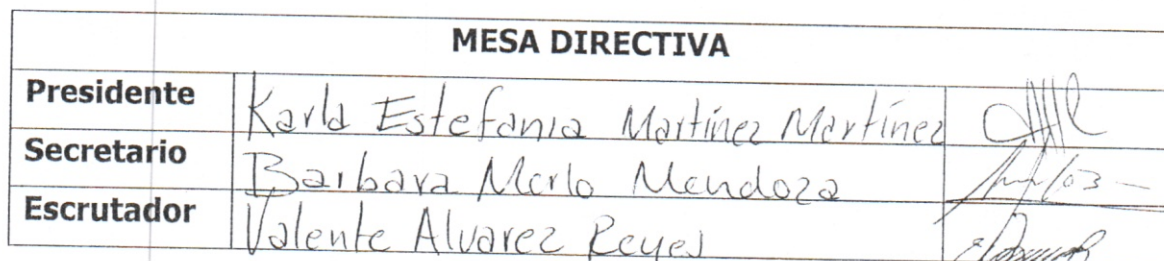 MESA DIRECTIVA
Presidente Karla Estefania Martínez Martínez
Secretario Barbara Merlo Mendoza
Escrutador Valente Alvarez Reyes